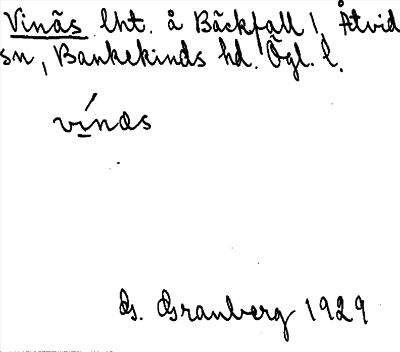 Vinäs lht. å Bäckfall 1, Åtvid
sn, Bankekinds hd. Ögl. l.
vínäs
G. Granberg 1929